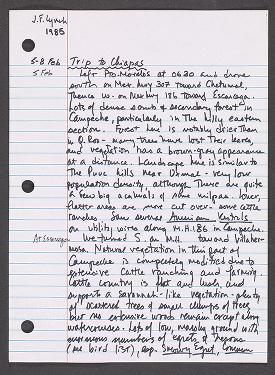 J.F. Lynch
1985
5-8 Feb Trip to Chiapas
5 Feb Left Pto. Morelos at 0630 and drove
south on Mex. Hwy 307 toward Chetumal,
thence W. on Mex Hwy 186 toward Escarcega.
Lots of dense scrub & secondary forest in
Campeche, particularly in the hilly eastern
section. Forest here is notably drier than
in Q. Roo - many trees have lost their leaves,
and vegetation has a brown-gray appearance
at a distance. Landscape here is similar to
the Puuc hills near Uxmal - very low
population density, although there are quite
a few big acahuals & some milpas. Lower,
flatter areas are more cut over - some cattle
ranches. Saw several American Kestrels
on utility wires along M.H. 186 in Campeche.
At Escarcega We turned S. on M.H. toward Villaher-
mosa. Natural vegetation in this part of
Campeche is completely modified due to
extensive cattle ranching and farming.
Cattle country is flat and lush, and
supports a savannah-like vegetation - plenty
of scattered trees & small clumps of trees,
but no extensive woods remain except along
watercourses. Lots of low, marshy ground with
enormous numbers of egrets & herons
(see bird list), esp. Snowy Egret, Common